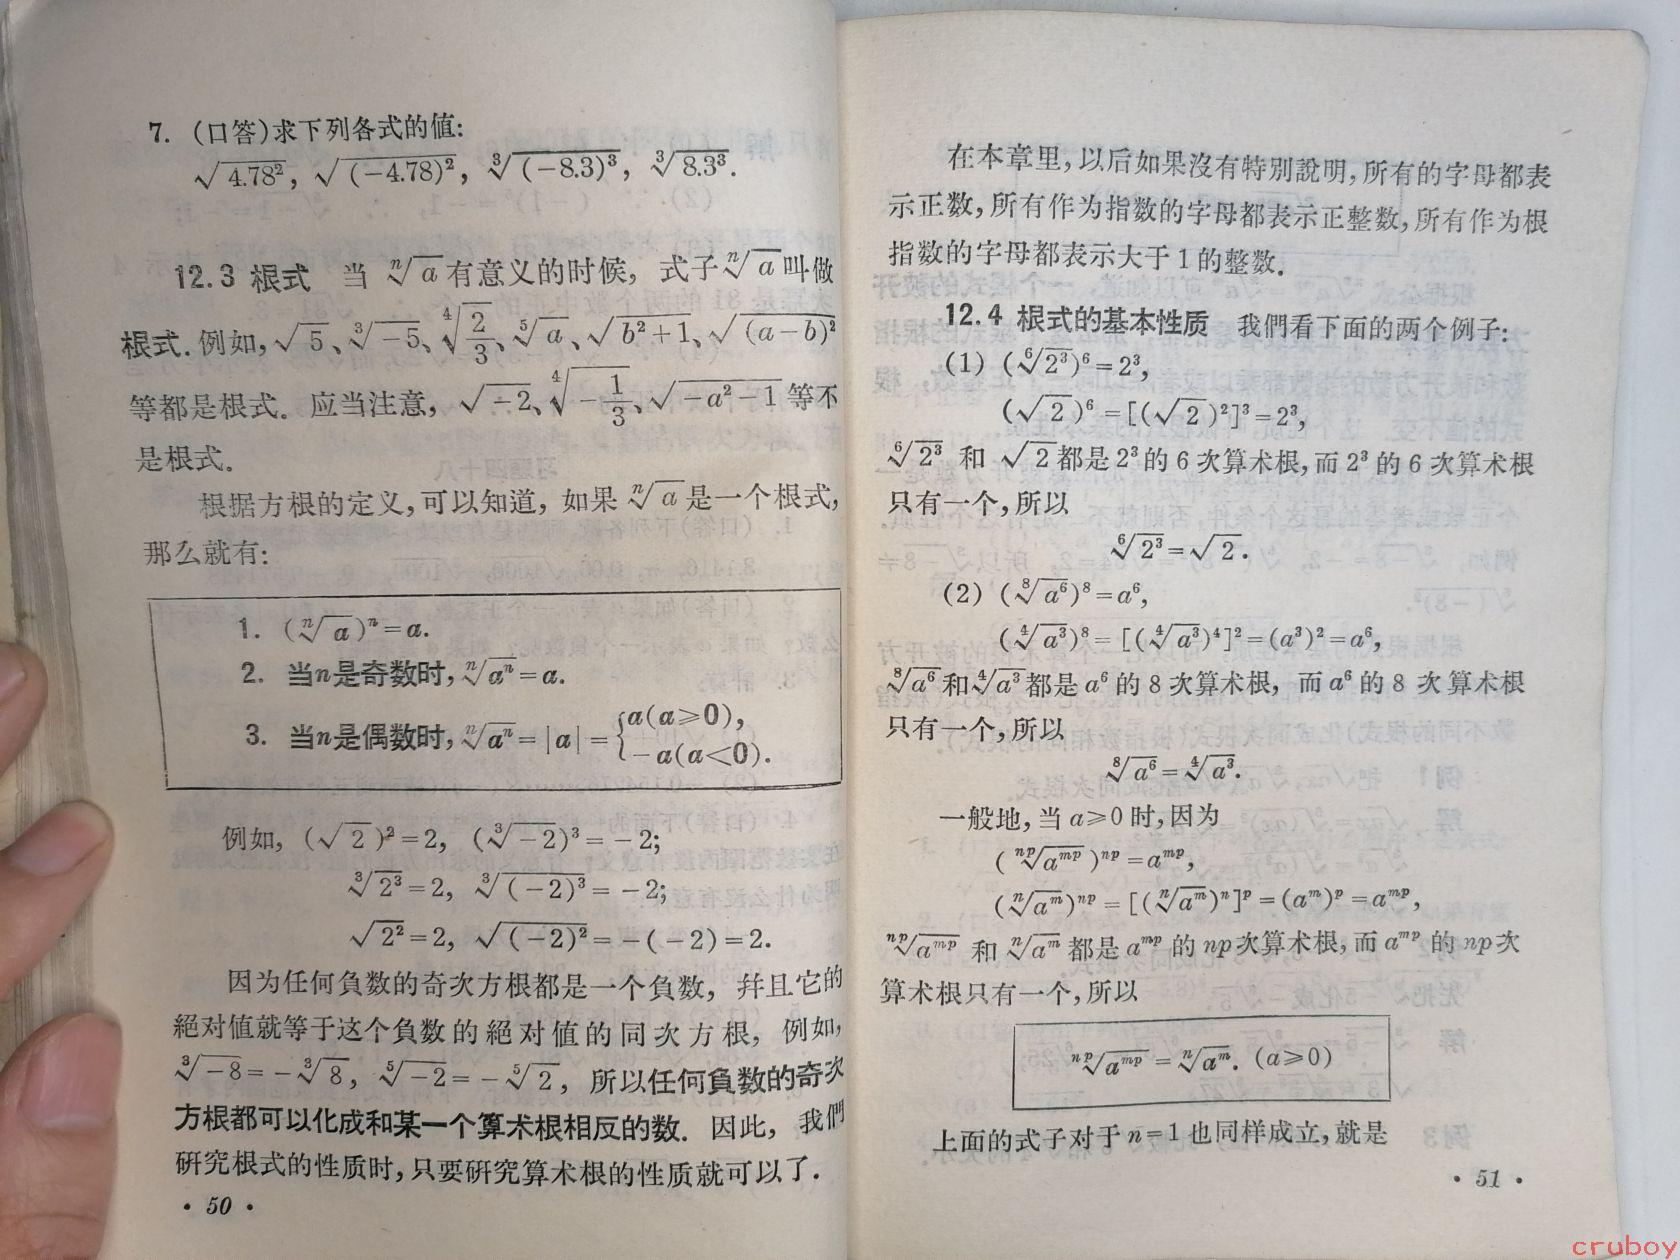 7. (口答)求下列各式的値:
√4.78², √(−4.78)², ∛(−8.3)³, ∛8.3³.
12.3 根式 当 ⁿ√a 有意义的时候, 式子 ⁿ√a 叫做
根式. 例如, √5、∛−5、⁴√(2/3)、⁵√a、√(b²+1)、√(a−b)²
等都是根式. 应当注意, √−2、⁴√(−1/3)、√(−a²−1) 等不
是根式.
根据方根的定义, 可以知道, 如果 ⁿ√a 是一个根式,
那么就有:
1. (ⁿ√a)ⁿ=a.
2. 当n是奇数时, ⁿ√aⁿ=a.
3. 当n是偶数时, ⁿ√aⁿ=|a|={a(a≥0),
−a(a<0).
例如, (√2)²=2, (∛−2)³=−2;
∛2³=2, ∛(−2)³=−2;
√2²=2, √(−2)²=−(−2)=2.
因为任何負数的奇次方根都是一个負数, 幷且它的
絕对値就等于这个負数的絕对値的同次方根, 例如,
∛−8=−∛8, ⁵√−2=−⁵√2, 所以任何負数的奇次
方根都可以化成和某一个算术根相反的数. 因此, 我們
硏究根式的性质时, 只要硏究算术根的性质就可以了.
· 50 ·
在本章里, 以后如果沒有特別說明, 所有的字母都表
示正数, 所有作为指数的字母都表示正整数, 所有作为根
指数的字母都表示大于1的整数.
12.4 根式的基本性质 我們看下面的两个例子:
(1) (⁶√2³)⁶=2³,
(√2)⁶=[(√2)²]³=2³,
⁶√2³ 和 √2 都是 2³ 的 6 次算术根, 而 2³ 的 6 次算术根
只有一个, 所以
⁶√2³=√2.
(2) (⁸√a⁶)⁸=a⁶,
(⁴√a³)⁸=[(⁴√a³)⁴]²=(a³)²=a⁶,
⁸√a⁶ 和 ⁴√a³ 都是 a⁶ 的 8 次算术根, 而 a⁶ 的 8 次算术根
只有一个, 所以
⁸√a⁶=⁴√a³.
一般地, 当 a≥0 时, 因为
(ⁿᵖ√aᵐᵖ)ⁿᵖ=aᵐᵖ,
(ⁿ√aᵐ)ⁿᵖ=[(ⁿ√aᵐ)ⁿ]ᵖ=(aᵐ)ᵖ=aᵐᵖ,
ⁿᵖ√aᵐᵖ 和 ⁿ√aᵐ 都是 aᵐᵖ 的 np 次算术根, 而 aᵐᵖ 的 np 次
算术根只有一个, 所以
ⁿᵖ√aᵐᵖ=ⁿ√aᵐ. (a≥0)
上面的式子对于 n=1 也同样成立, 就是
· 51 ·
cruboy